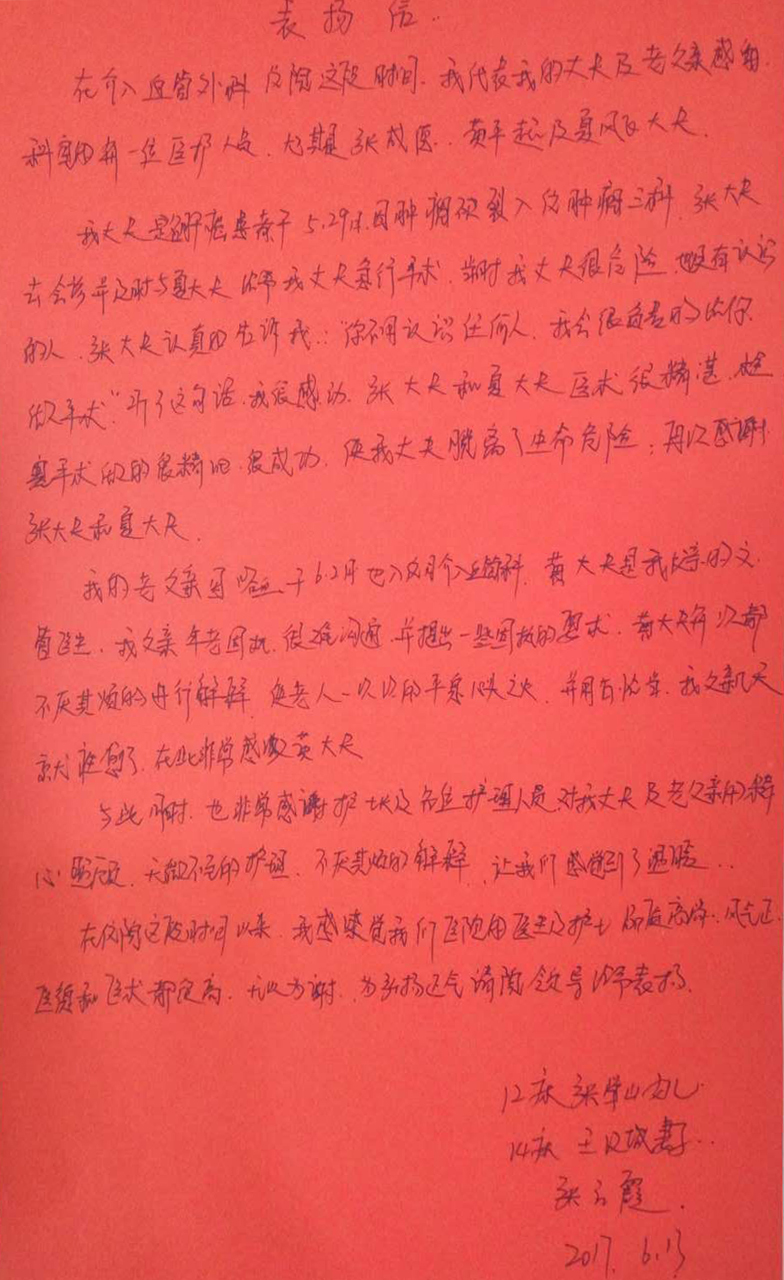 表扬信.
在介入血管外科住院这段时间.我代表我的丈夫及老父亲感谢
科室的每一位医护人员.尤其是张成医..黄平起及夏风飞大夫.
我丈夫是肝癌患者于5.29日.因肿瘤破裂入住肿瘤三科.张大夫
去会诊并及时与夏大夫给予我丈夫急行手术.当时我丈夫很危险.也没有认识
的人.张大夫认真的告诉我:"你不用认识任何人.我会很负责的给你
做手术."听了这句话.我很感动.张大夫和夏大夫医术很精湛.栓
塞手术做的很精细.很成功.使我丈夫脱离了生命危险;再次感谢
张大夫和夏大夫.
我的老父亲因咯血于6.2日也入住介入血管科.黄大夫是我父亲的主
管医生.我父亲年老固执.很难沟通.并提出一些固执的要求.黄大夫每次都
不厌其烦的进行解释.使老人一次次的平息心头之火.并用药恰当.我父亲几天
就痊愈了.在此非常感谢黄大夫
与此同时.也非常感谢护士长及各位护理人员对我丈夫及老父亲的精
心照顾.无微不至的护理.不厌其烦的解释.让我们感觉到了温暖..
在住院这段时间以来.我感觉我们医院的医生及护士品德高尚.风气正
医德和医术都很高.无以为谢.为弘扬正气请院领导给予表扬.
12床 张 女儿
14床 王 妻子..
张云霞.
2017. 6.13